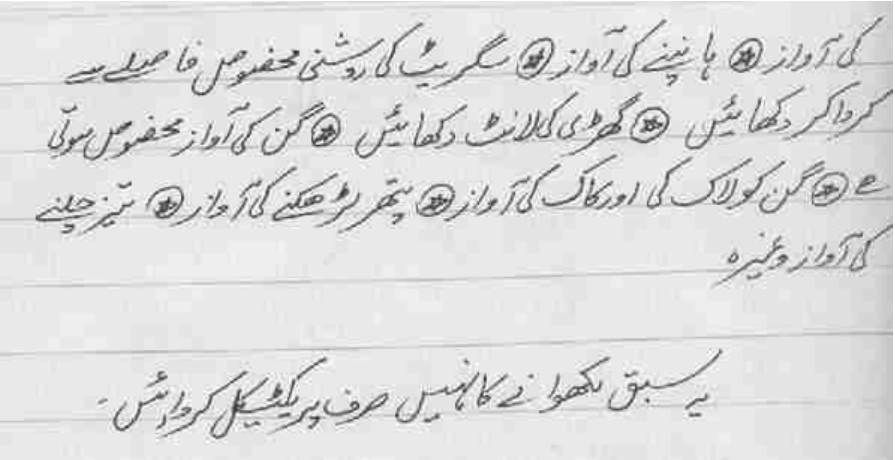 کی آواز * ہانپنے کی آواز * سگریٹ کی روشنی مخصوص فاصلے سے
کرواکر دکھائیں * گھڑی کی لائٹ دکھائیں * گن کی آواز مخصوص ہوتی
ہے * گن کو لاک کی اور کاک کی آواز * پتھر لڑھکنے کی آواز * تیز چلنے
کی آواز وغیرہ
یہ سبق لکھوانے کا نہیں صرف پریکٹیکل کروائیں۔